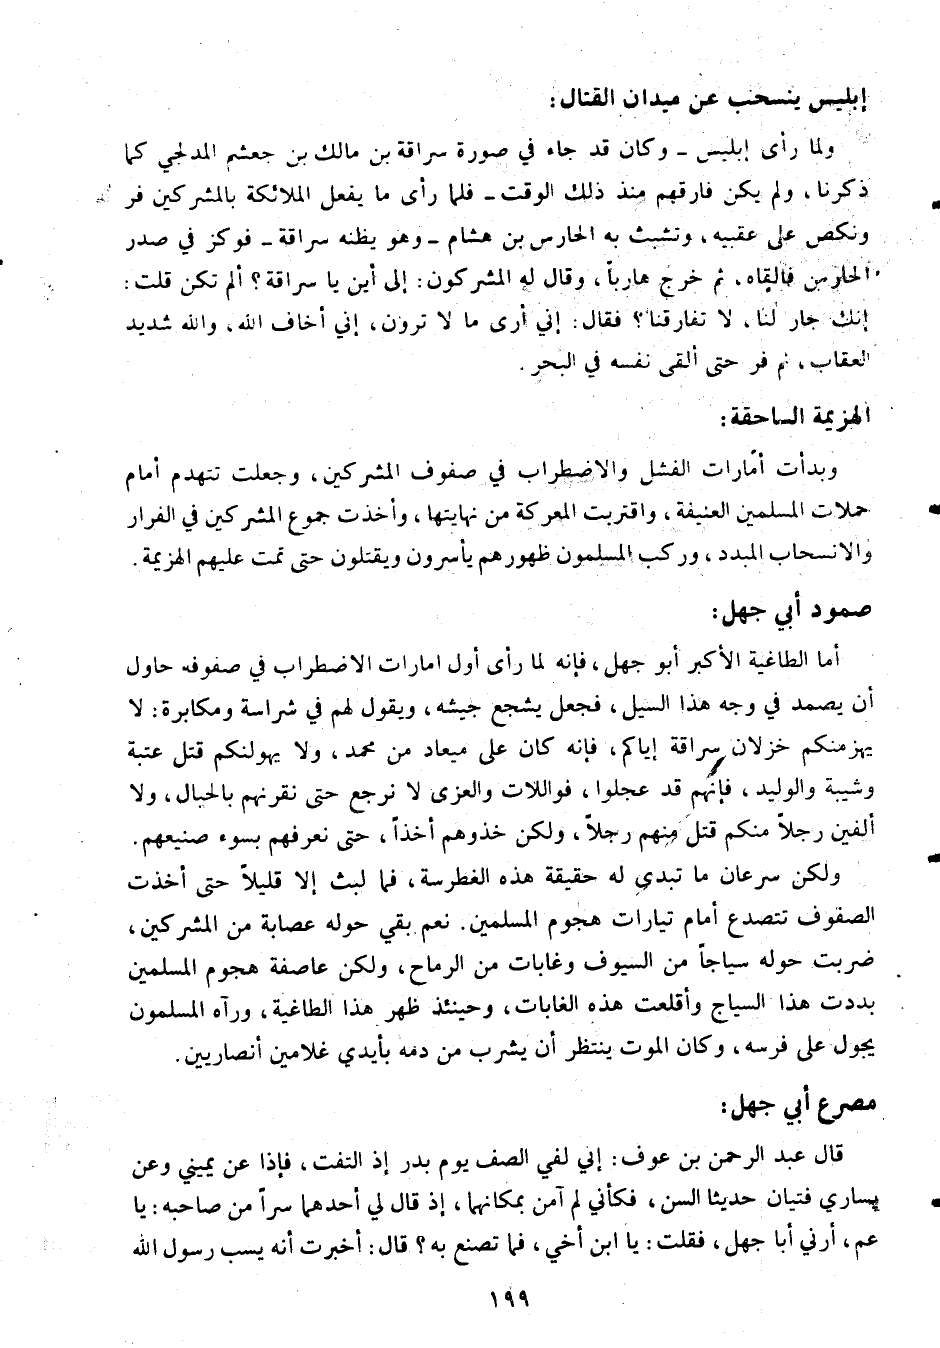 إبليس ينسحب عن ميدان القتال:
ولما رأى إبليس ــ وكان قد جاء في صورة سراقة بن مالك بن جعشم المدلجي كما
ذكرنا، ولم يكن فارقهم منذ ذلك الوقت ــ فلما رأى ما يفعل الملائكة بالمشركين فر
ونكص على عقبيه، وتشبث به الحارس بن هشام ــ وهو يظنه سراقة ــ فوكز في صدر
الحارس فألقاه. ثم خرج هارباً، وقال له المشركون: إلى أين يا سراقة؟ ألم تكن قلت:
إنك جار لنا، لا تفارقنا؟ فقال: إني أرى ما لا ترون، إني أخاف الله، والله شديد
العقاب، ثم فر حتى ألقى نفسه في البحر.
الهزيمة الساحقة:
وبدأت أمارات الفشل والاضطراب في صفوف المشركين، وجعلت تتهدم أمام
حملات المسلمين العنيفة، واقتربت المعركة من نهايتها، وأخذت جموع المشركين في الفرار
والانسحاب المبدد، وركب المسلمون ظهورهم يأسرون ويقتلون حتى تمت عليهم الهزيمة.
صمود أبي جهل:
أما الطاغية الأكبر أبو جهل، فإنه لما رأى أول امارات الاضطراب في صفوفه حاول
أن يصمد في وجه هذا السيل، فجعل يشجع جيشه، ويقول لهم في شراسة ومكابرة: لا
يهزمنكم خزلان سراقة إياكم، فإنه كان على ميعاد من محمد، ولا يهولنكم قتل عتبة
وشيبة والوليد، فإنهم قد عجلوا، فواللات والعزى لا نرجع حتى نقرنهم بالحبال، ولا
ألفين رجلاً منكم قتل منهم رجلاً، ولكن خذوهم أخذاً، حتى نعرفهم بسوء صنيعهم.
ولكن سرعان ما تبدي له حقيقة هذه الغطرسة، فما لبث إلا قليلاً حتى أخذت
الصفوف تتصدع أمام تيارات هجوم المسلمين. نعم بقي حوله عصابة من المشركين،
ضربت حوله سياجاً من السيوف وغابات من الرماح، ولكن عاصفة هجوم المسلمين
بددت هذا السياج وأقلعت هذه الغابات، وحينئذ ظهر هذا الطاغية، ورآه المسلمون
يجول على فرسه، وكان الموت ينتظر أن يشرب من دمه بأيدي غلامين أنصاريين.
مصرع أبي جهل:
قال عبد الرحمن بن عوف: إني لفي الصف يوم بدر إذ التفت، فإذا عن يميني وعن
يساري فتيان حديثا السن، فكأني لم آمن بمكانهما، إذ قال لي أحدهما سراً من صاحبه: يا
عم، أرني أبا جهل، فقلت: يا ابن أخي، فما تصنع به؟ قال: أخبرت أنه يسب رسول الله
١٩٩